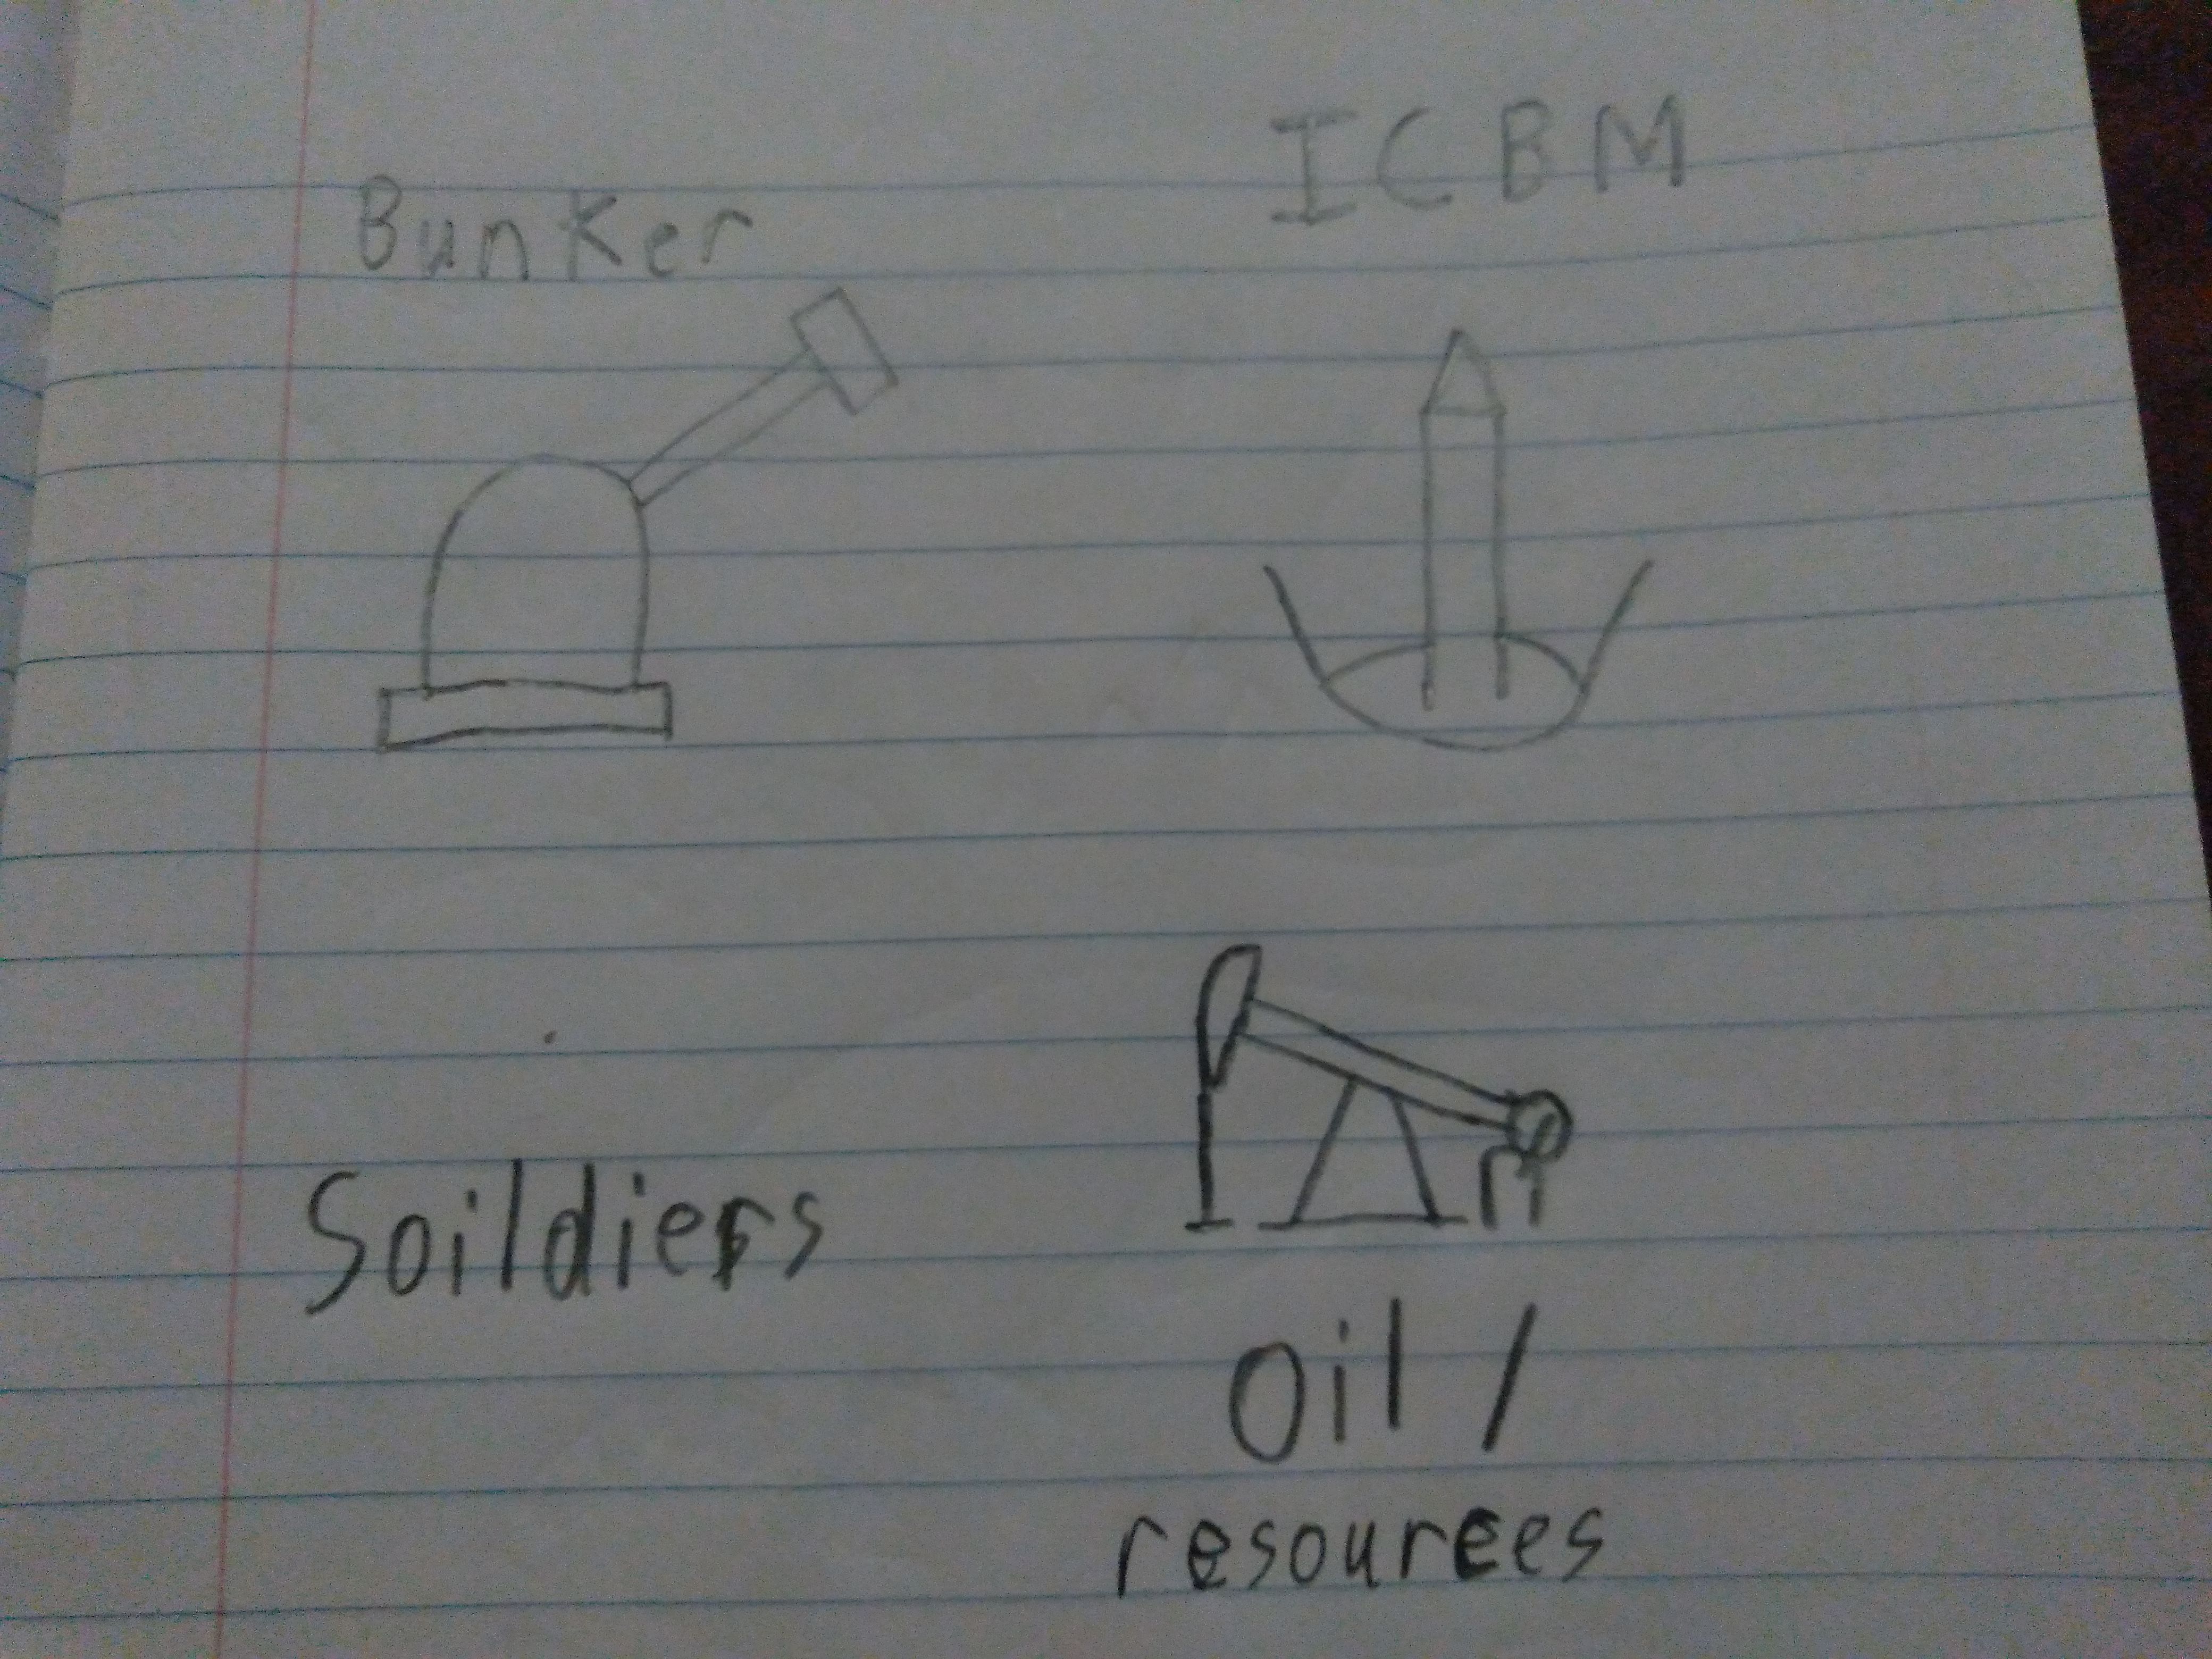 Bunker
ICBM
Soildiers
Oil /
resources